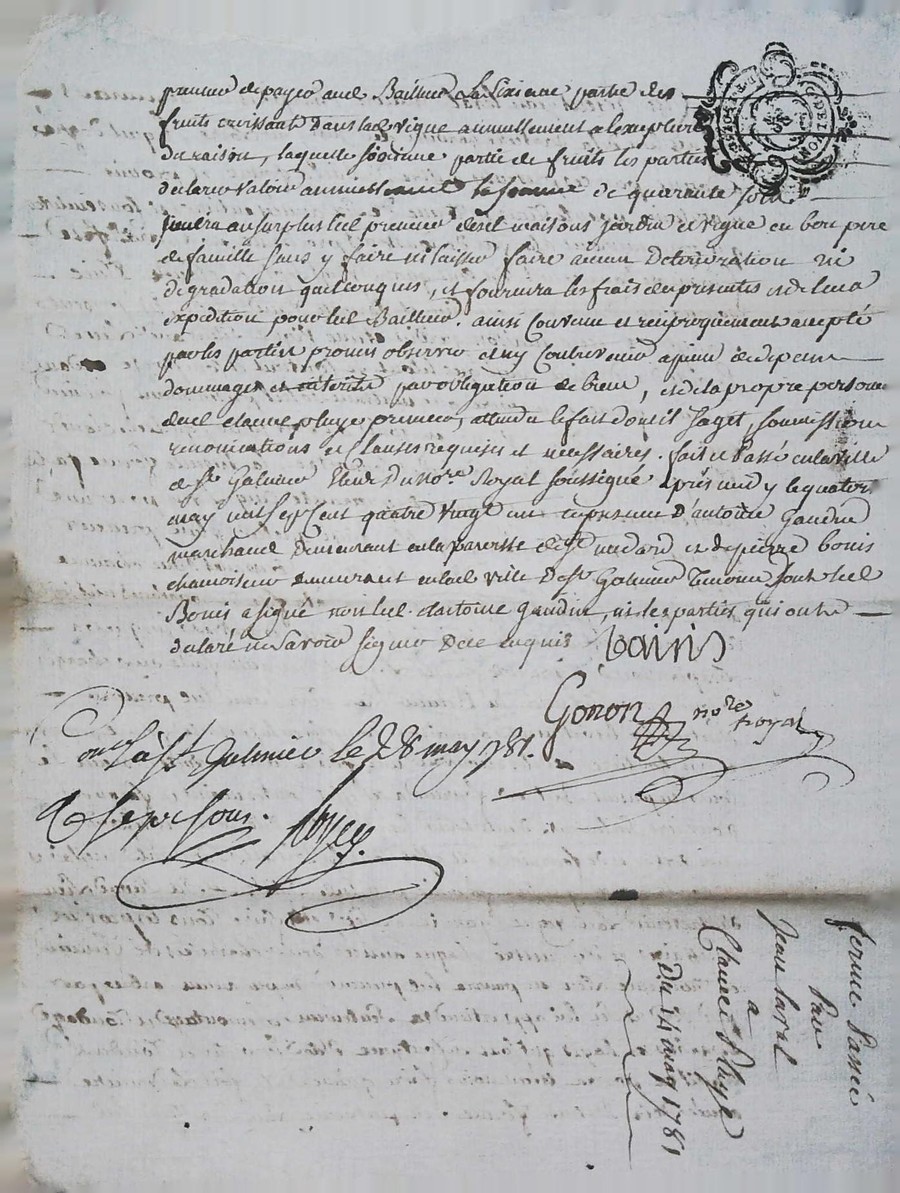 preneur de payer aud Bailleur La Sixieme partie des
fruits croissant dans lad vigne annuellement a lexeption
du raisin, laquelle partie de fruits les parties
declare valoir annuellement la somme de quarante sols
jouira au surplus led preneur desd maisons jardin et vigne en bon pere
de famille sans y faire ni laisser faire aucun deterioration ni
degradation quelconques, et fournira les frais des presentes et de leur
expedition pour led Bailleur. ainsi convenu et reciproquement accepté
par les parties promis observer et ny contrevenir a peine de depens
dommages et interets par obligation de biens, et de la propre personne
dud claude pluye preneur, attendu le fait dont il sagit, soumissions
renonciations et clauses requises et necessaires. fait et Passé en la ville
de St Galmier Etude du nore Royal soussigné après midy le quatorze
may mil sept cent quatre vingt un en presence d'antoine Gaudin
marchand demeurant en la paroisse de St medard et de pierre bonis
chamoiseur demeurant en lad ville de St Galmier Temoins dont led
Bonis a signé non led. antoine Gaudin, ni les parties qui ont
declaré ne savoir signer de ce enquis bonis
Gonon nore Royal
à St Galmier le 28 may 1781.
sols.
ferme Passée
Par
Jean laval
a
Claude Pluye
du 14 may 1781